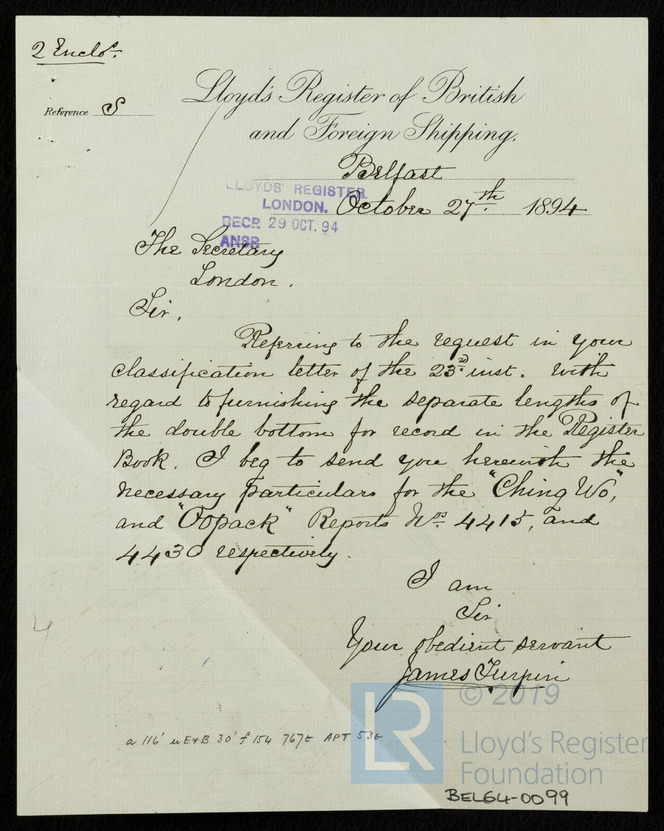 2 Enclos.
Reference S
Lloyd's Register of British
and Foreign Shipping.
Belfast
October 27th. 1894
LLOYDS' REGISTER
LONDON.
RECD. 29 OCT. 94
ANSD
The Secretary
London.
Sir,
Referring to the request in your
classification letter of the 23rd inst. with
regard to furnishing the separate lengths of
the double bottom for record in the Register
Book. I beg to send you herewith the
necessary particulars for the "Ching Wo",
and "Oopack" Reports Nos. 4415, and
4430 respectively.
I am
Sir
Your obedient servant
James Turpin
4
a 116' u E+B 30' f 154 767t APT 53t
© 2019
LR
Lloyd's Register
Foundation
BEL64-0099